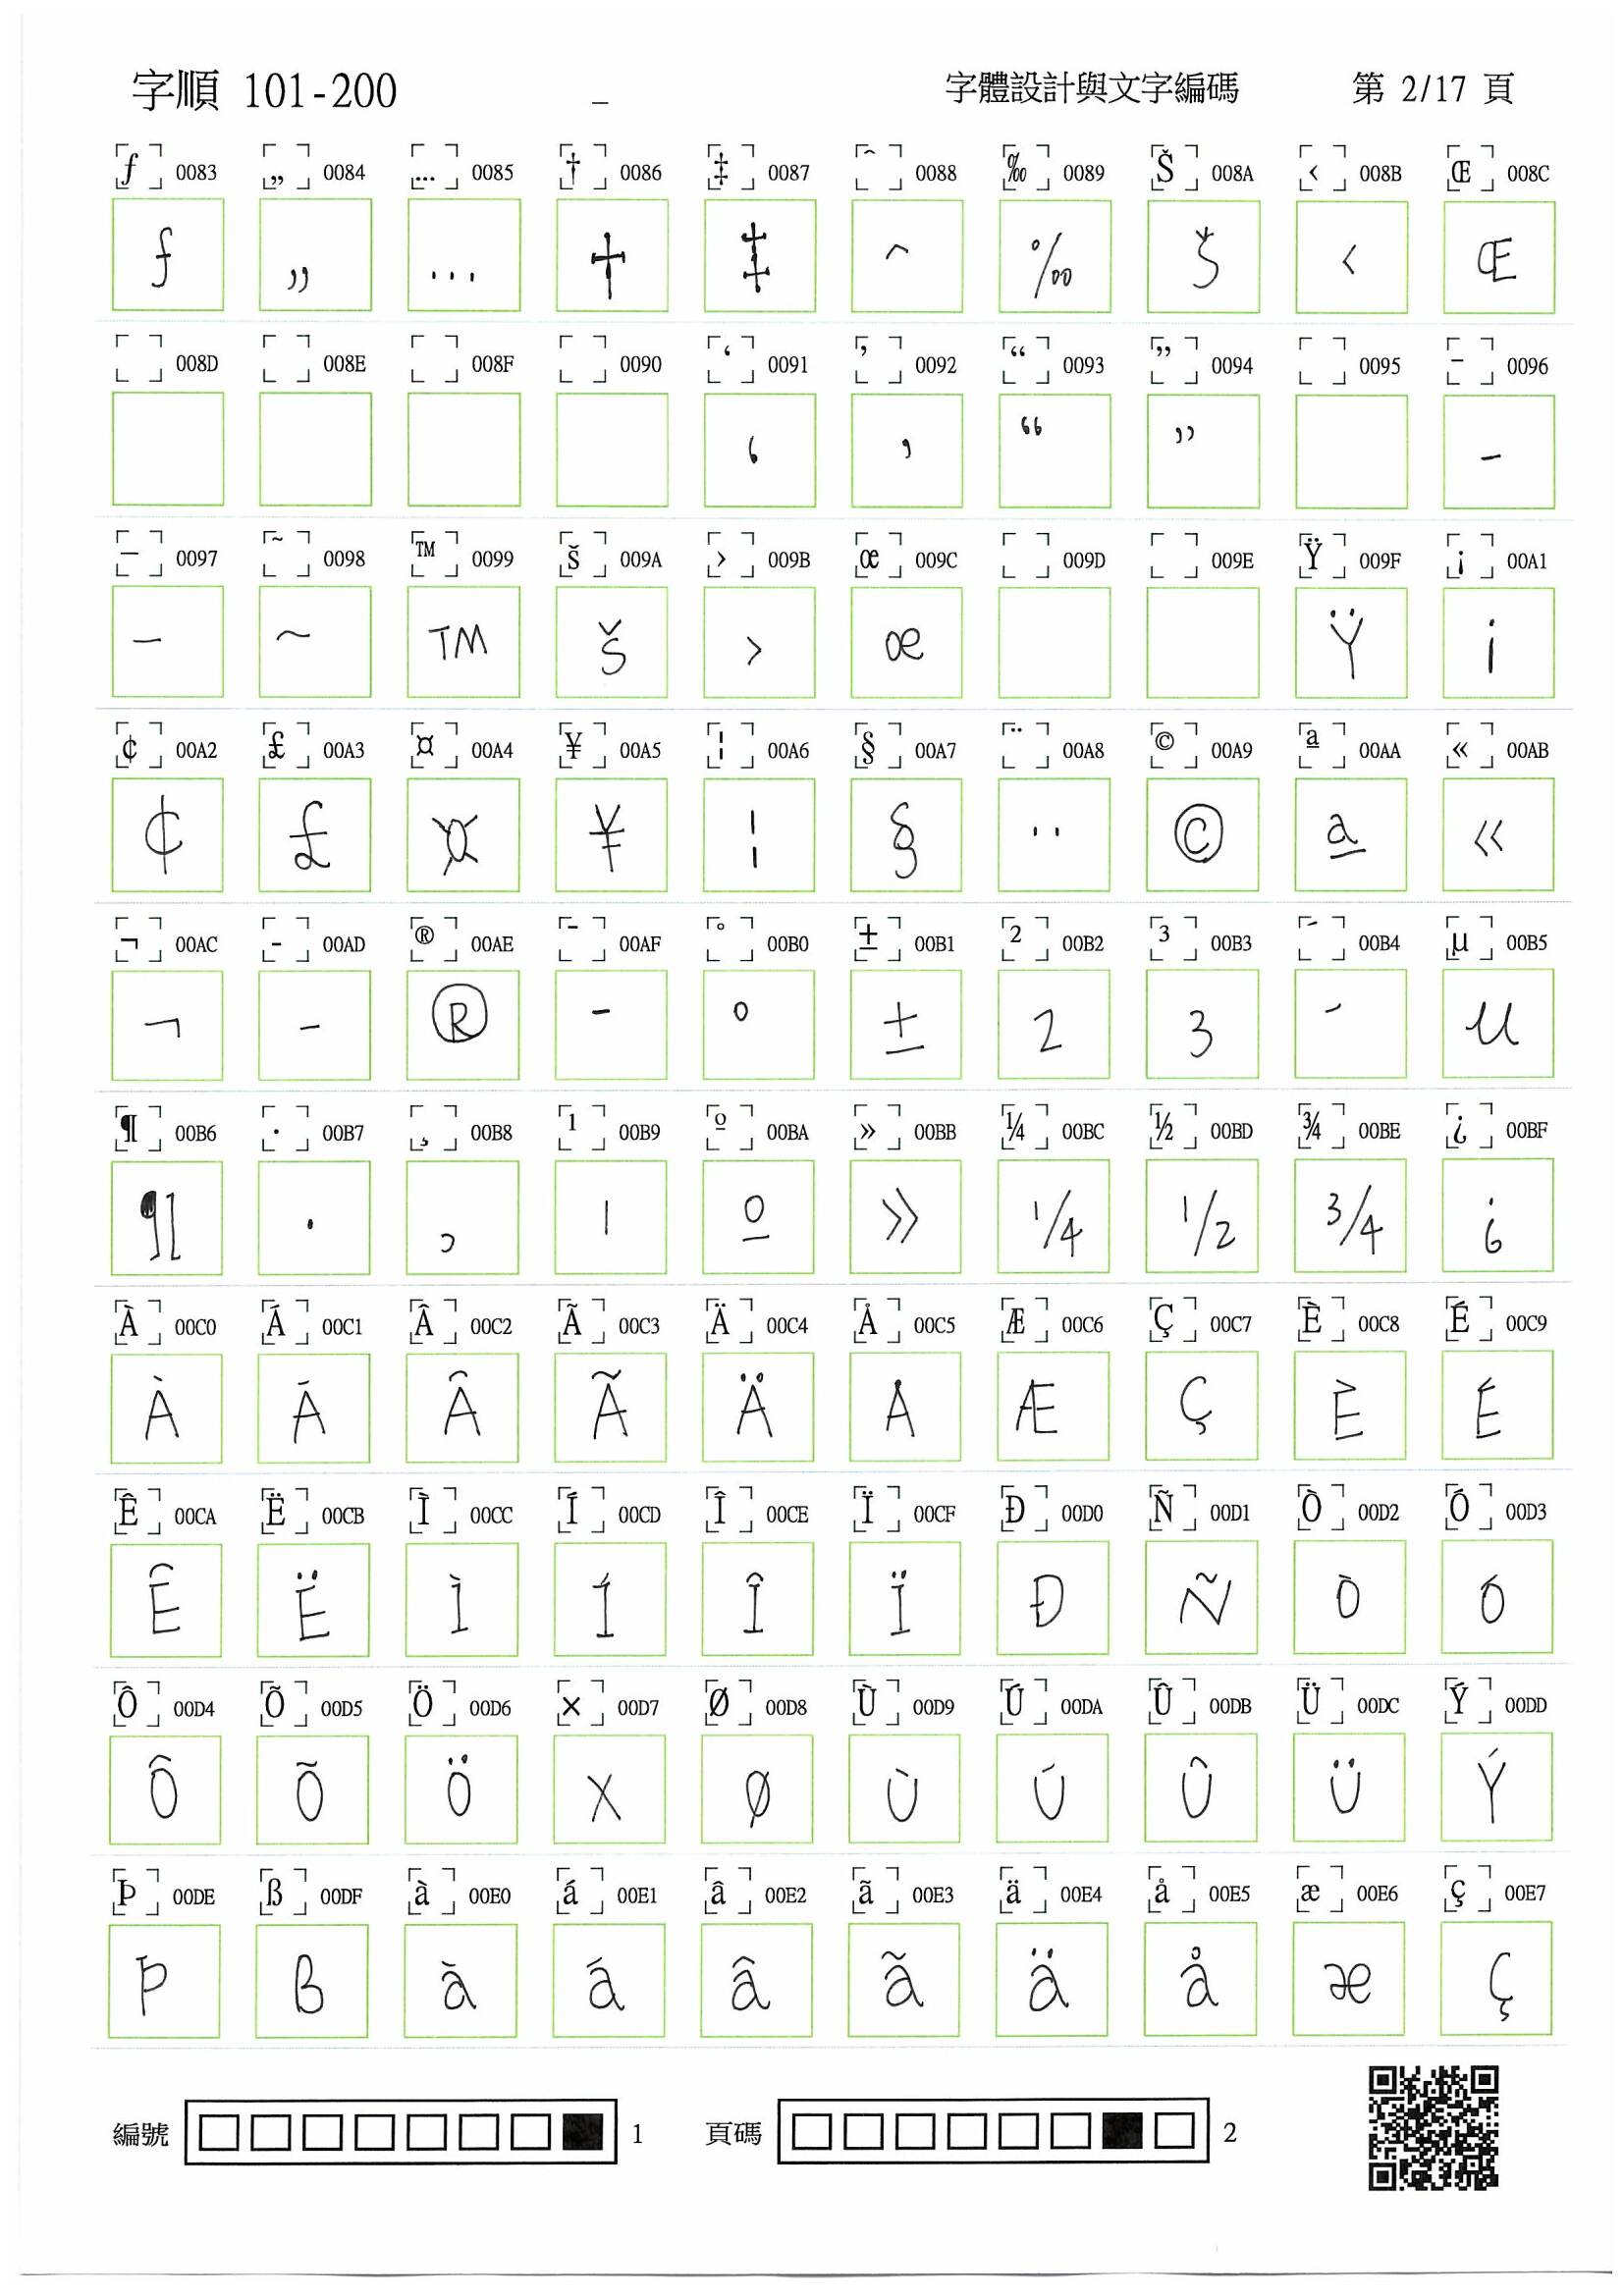 字順 101-200 _ 字體設計與文字編碼 第 2/17 頁
ƒ 0083 „ 0084 … 0085 † 0086 ‡ 0087 ˆ 0088 ‰ 0089 Š 008A ‹ 008B Œ 008C
ƒ „ … † ‡ ˆ ‰ Š ‹ Œ
008D 008E 008F 0090 ‘ 0091 ’ 0092 “ 0093 ” 0094 0095 – 0096
‘ ’ “ ” –
— 0097 ˜ 0098 ™ 0099 š 009A › 009B œ 009C 009D 009E Ÿ 009F ¡ 00A1
— ~ TM š › œ Ÿ ¡
¢ 00A2 £ 00A3 ¤ 00A4 ¥ 00A5 ¦ 00A6 § 00A7 ¨ 00A8 © 00A9 ª 00AA « 00AB
¢ £ ¤ ¥ ¦ § ¨ © ª «
¬ 00AC - 00AD ® 00AE ¯ 00AF ° 00B0 ± 00B1 ² 00B2 ³ 00B3 ´ 00B4 µ 00B5
¬ - ® ¯ ° ± 2 3 ´ µ
¶ 00B6 · 00B7 ¸ 00B8 ¹ 00B9 º 00BA » 00BB ¼ 00BC ½ 00BD ¾ 00BE ¿ 00BF
¶ · ¸ ¹ º » ¼ ½ ¾ ¿
À 00C0 Á 00C1 Â 00C2 Ã 00C3 Ä 00C4 Å 00C5 Æ 00C6 Ç 00C7 È 00C8 É 00C9
À Á Â Ã Ä Å Æ Ç È É
Ê 00CA Ë 00CB Ì 00CC Í 00CD Î 00CE Ï 00CF Ð 00D0 Ñ 00D1 Ò 00D2 Ó 00D3
Ê Ë Ì Í Î Ï Ð Ñ Ò Ó
Ô 00D4 Õ 00D5 Ö 00D6 × 00D7 Ø 00D8 Ù 00D9 Ú 00DA Û 00DB Ü 00DC Ý 00DD
Ô Õ Ö × Ø Ù Ú Û Ü Ý
Þ 00DE ß 00DF à 00E0 á 00E1 â 00E2 ã 00E3 ä 00E4 å 00E5 æ 00E6 ç 00E7
Þ ß à á â ã ä å æ ç
編號 1 頁碼 2